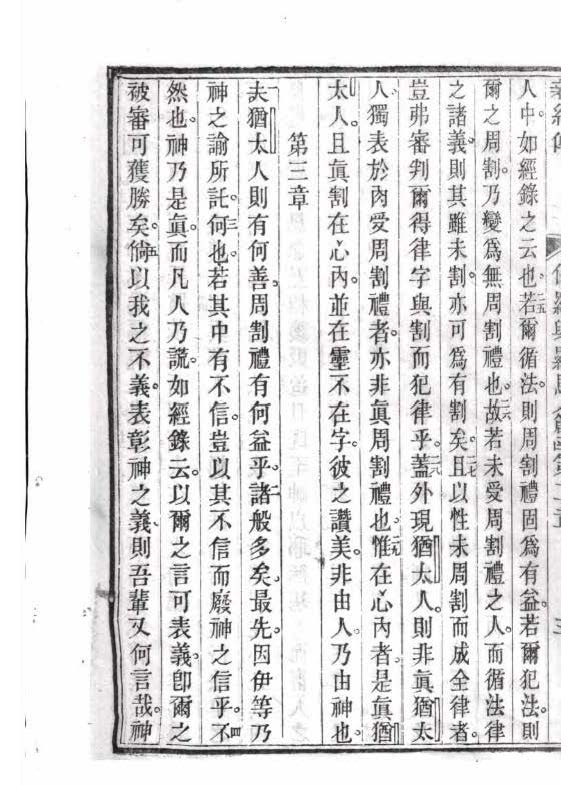 人中。如經錄之云也。二五若爾循法。則周割禮固爲有益。若爾犯法則
爾之周割。乃變爲無周割禮也。二六故若未受周割禮之人。而循法律
之諸義。則其雖未割。亦可爲有割矣。二七且以性未周割而成全律者。
豈弗審判爾得律字與割而犯律乎。二八蓋外現猶太人。則非眞猶太
人。獨表於肉受周割禮者。亦非眞周割禮也。二九惟在心內者是眞猶
太人。且眞割在心內。並在靈不在字。彼之讚美。非由人乃由神也。
第三章
一夫猶太人則有何善。周割禮有何益乎。二諸般多矣。最先。因伊等乃
神之諭所託。三何也。若其中有不信。豈以其不信而廢神之信乎。四不
然也。神乃是眞。而凡人乃謊。如經錄云。以爾之言可表義。卽爾之
被審可獲勝矣。五倘以我之不義。表彰神之義。則吾輩又何言哉。神